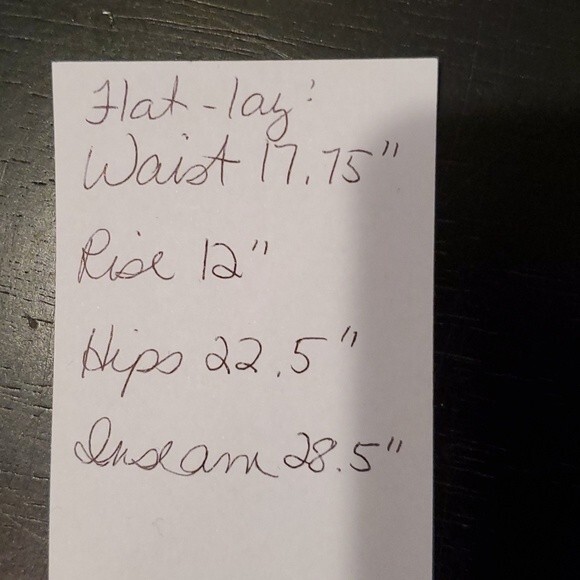 Flat-lay:
Waist 17.75"
Rise 12"
Hips 22.5"
Inseam 28.5"